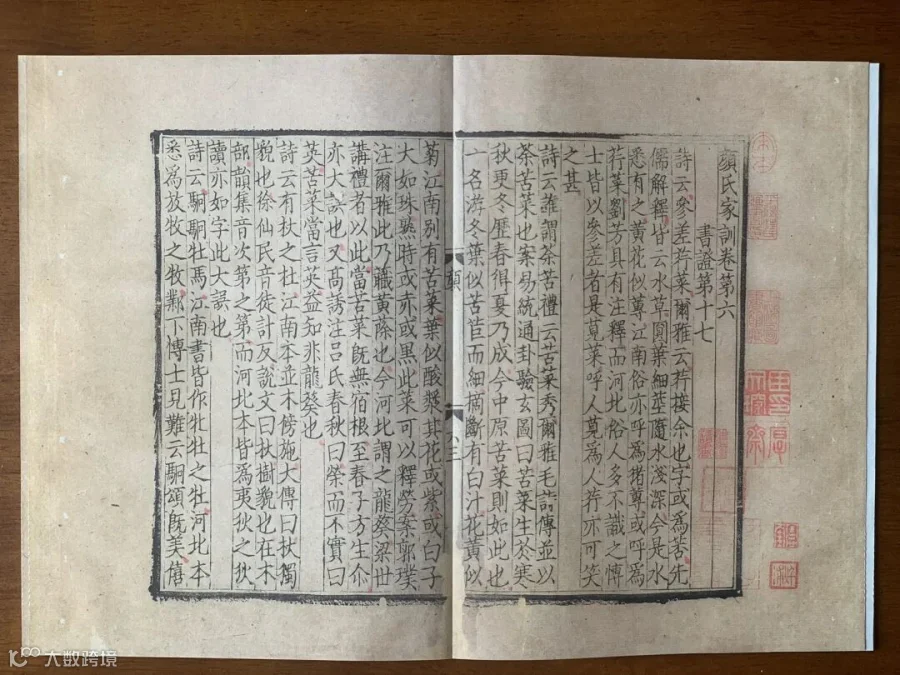 顔氏家訓卷第六
書證第十七
詩云參差荇菜爾雅云荇接余也字或爲莕先
儒解釋皆云水草圓葉細莖隨水淺深今是水
悉有之黃花似蓴江南俗亦呼爲猪蓴或呼爲
荇菜劉芳具有注釋而河北俗人多不識之博
士皆以參差者是莧菜呼人莧爲人荇亦可笑
之甚
詩云誰謂荼苦禮云苦菜秀爾雅毛詩傳並以
荼苦菜也案易統通卦驗玄圖曰苦菜生於寒
秋更冬歷春得夏乃成今中原苦菜則如此也
一名游冬葉似苦苣而細摘斷有白汁花黃似
顔
六三
菊江南别有苦菜葉似酸漿其花或紫或白子
大如珠熟時或赤或黑此菜可以釋勞案郭璞
注爾雅此乃蘵黃蒢也今河北謂之龍葵梁世
講禮者以此當苦菜旣無宿根至春子方生尒
亦大誤也又髙誘注呂氏春秋曰榮而不實曰
英苦菜當言英益知非龍葵也
詩云有杕之杜江南本並木傍施大傳曰杕獨
貌也徐仙民音徒計反說文曰杕樹貌也在木
部韻集音次第之第而河北本皆爲夷狄之狄
讀亦如字此大誤也
詩云駉駉牡馬江南書皆作牝牡之牡河北本
悉爲放牧之牧鄴下博士見難云駉頌旣美僖
大数跨境